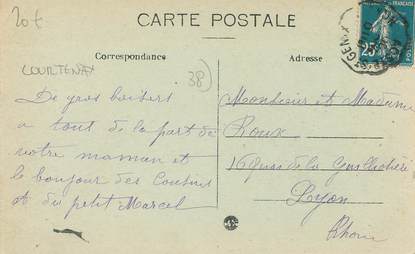 20 €
CARTE POSTALE
Correspondance
Adresse
COURTENAY
38)
25
De gros baisers
a tout de la part de
votre maman et
le bonjour des Cousins
et du petit Marcel
Monsieur et Madame
Roux
16 quai de la Guillotière
Lyon
Rhône